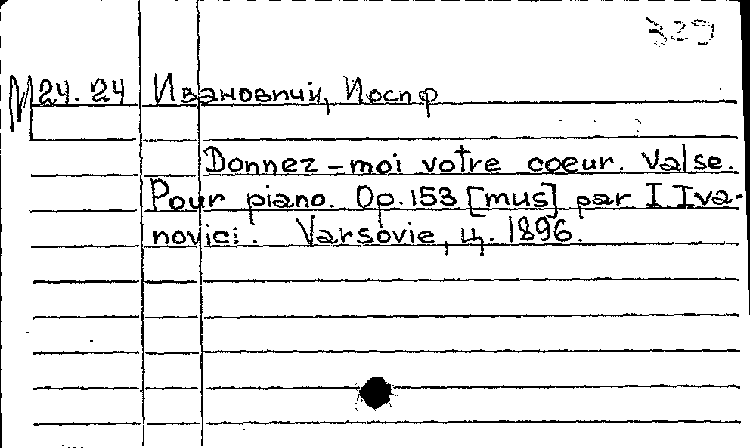 329
М 24.24 Ивановичи, Иосиф
Donnez-moi votre coeur. Valse.
Pour piano. Op. 153 [mus] par I Iva-
novici. Varsovie, ц. 1896.